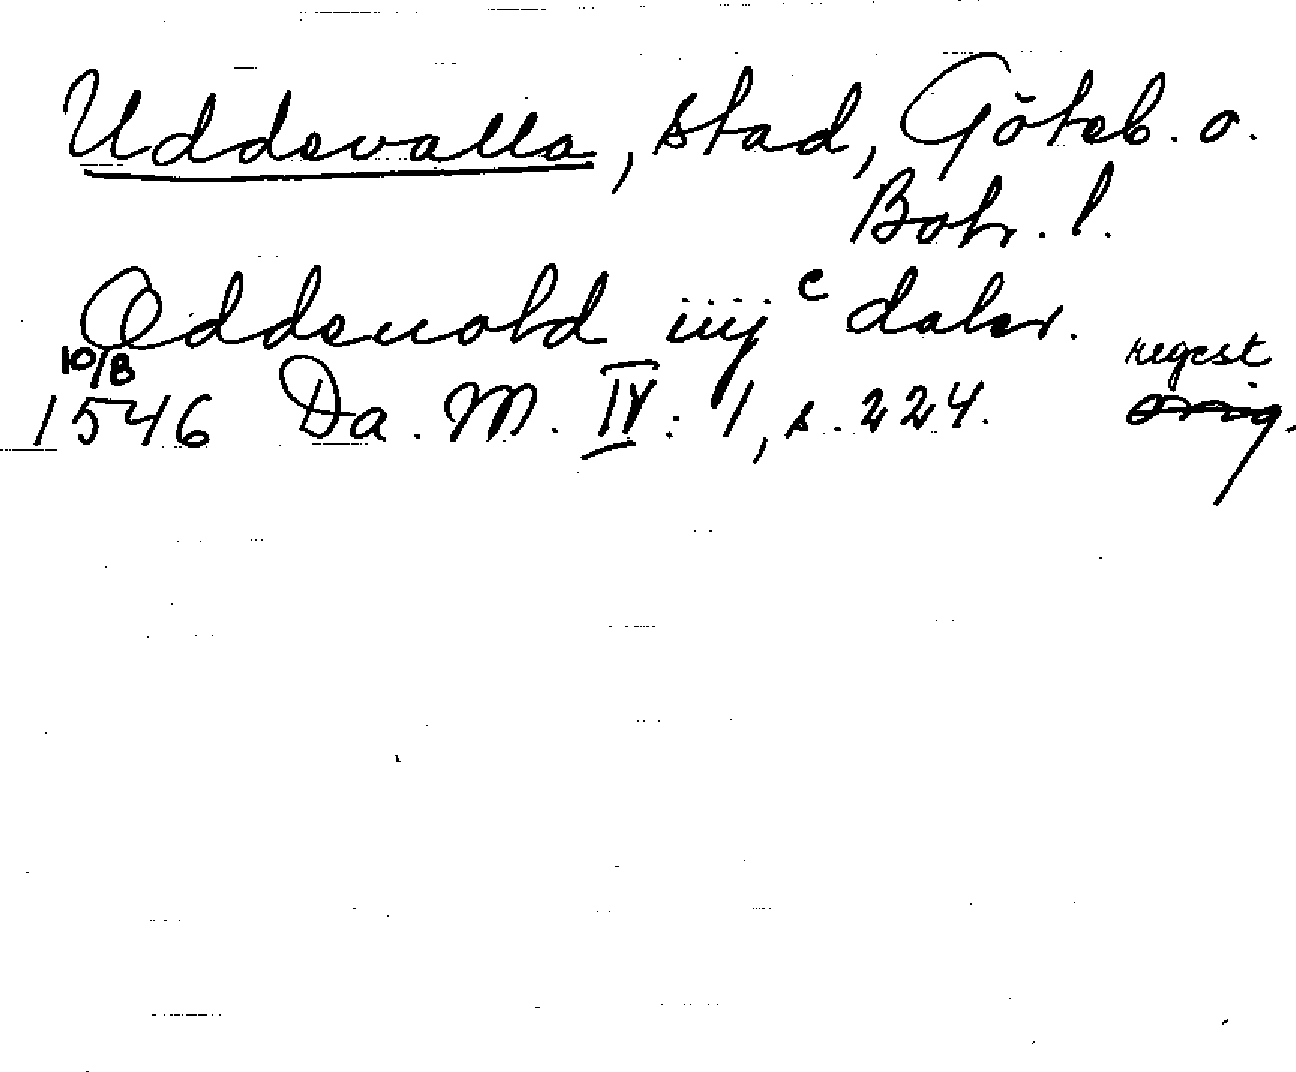 Uddevalla, stad, Göteb. o.
Boh. l.
Oddeuold iiij c daler.
10/8
1546 Da. M. IV: 1, s. 224. regest
orig.